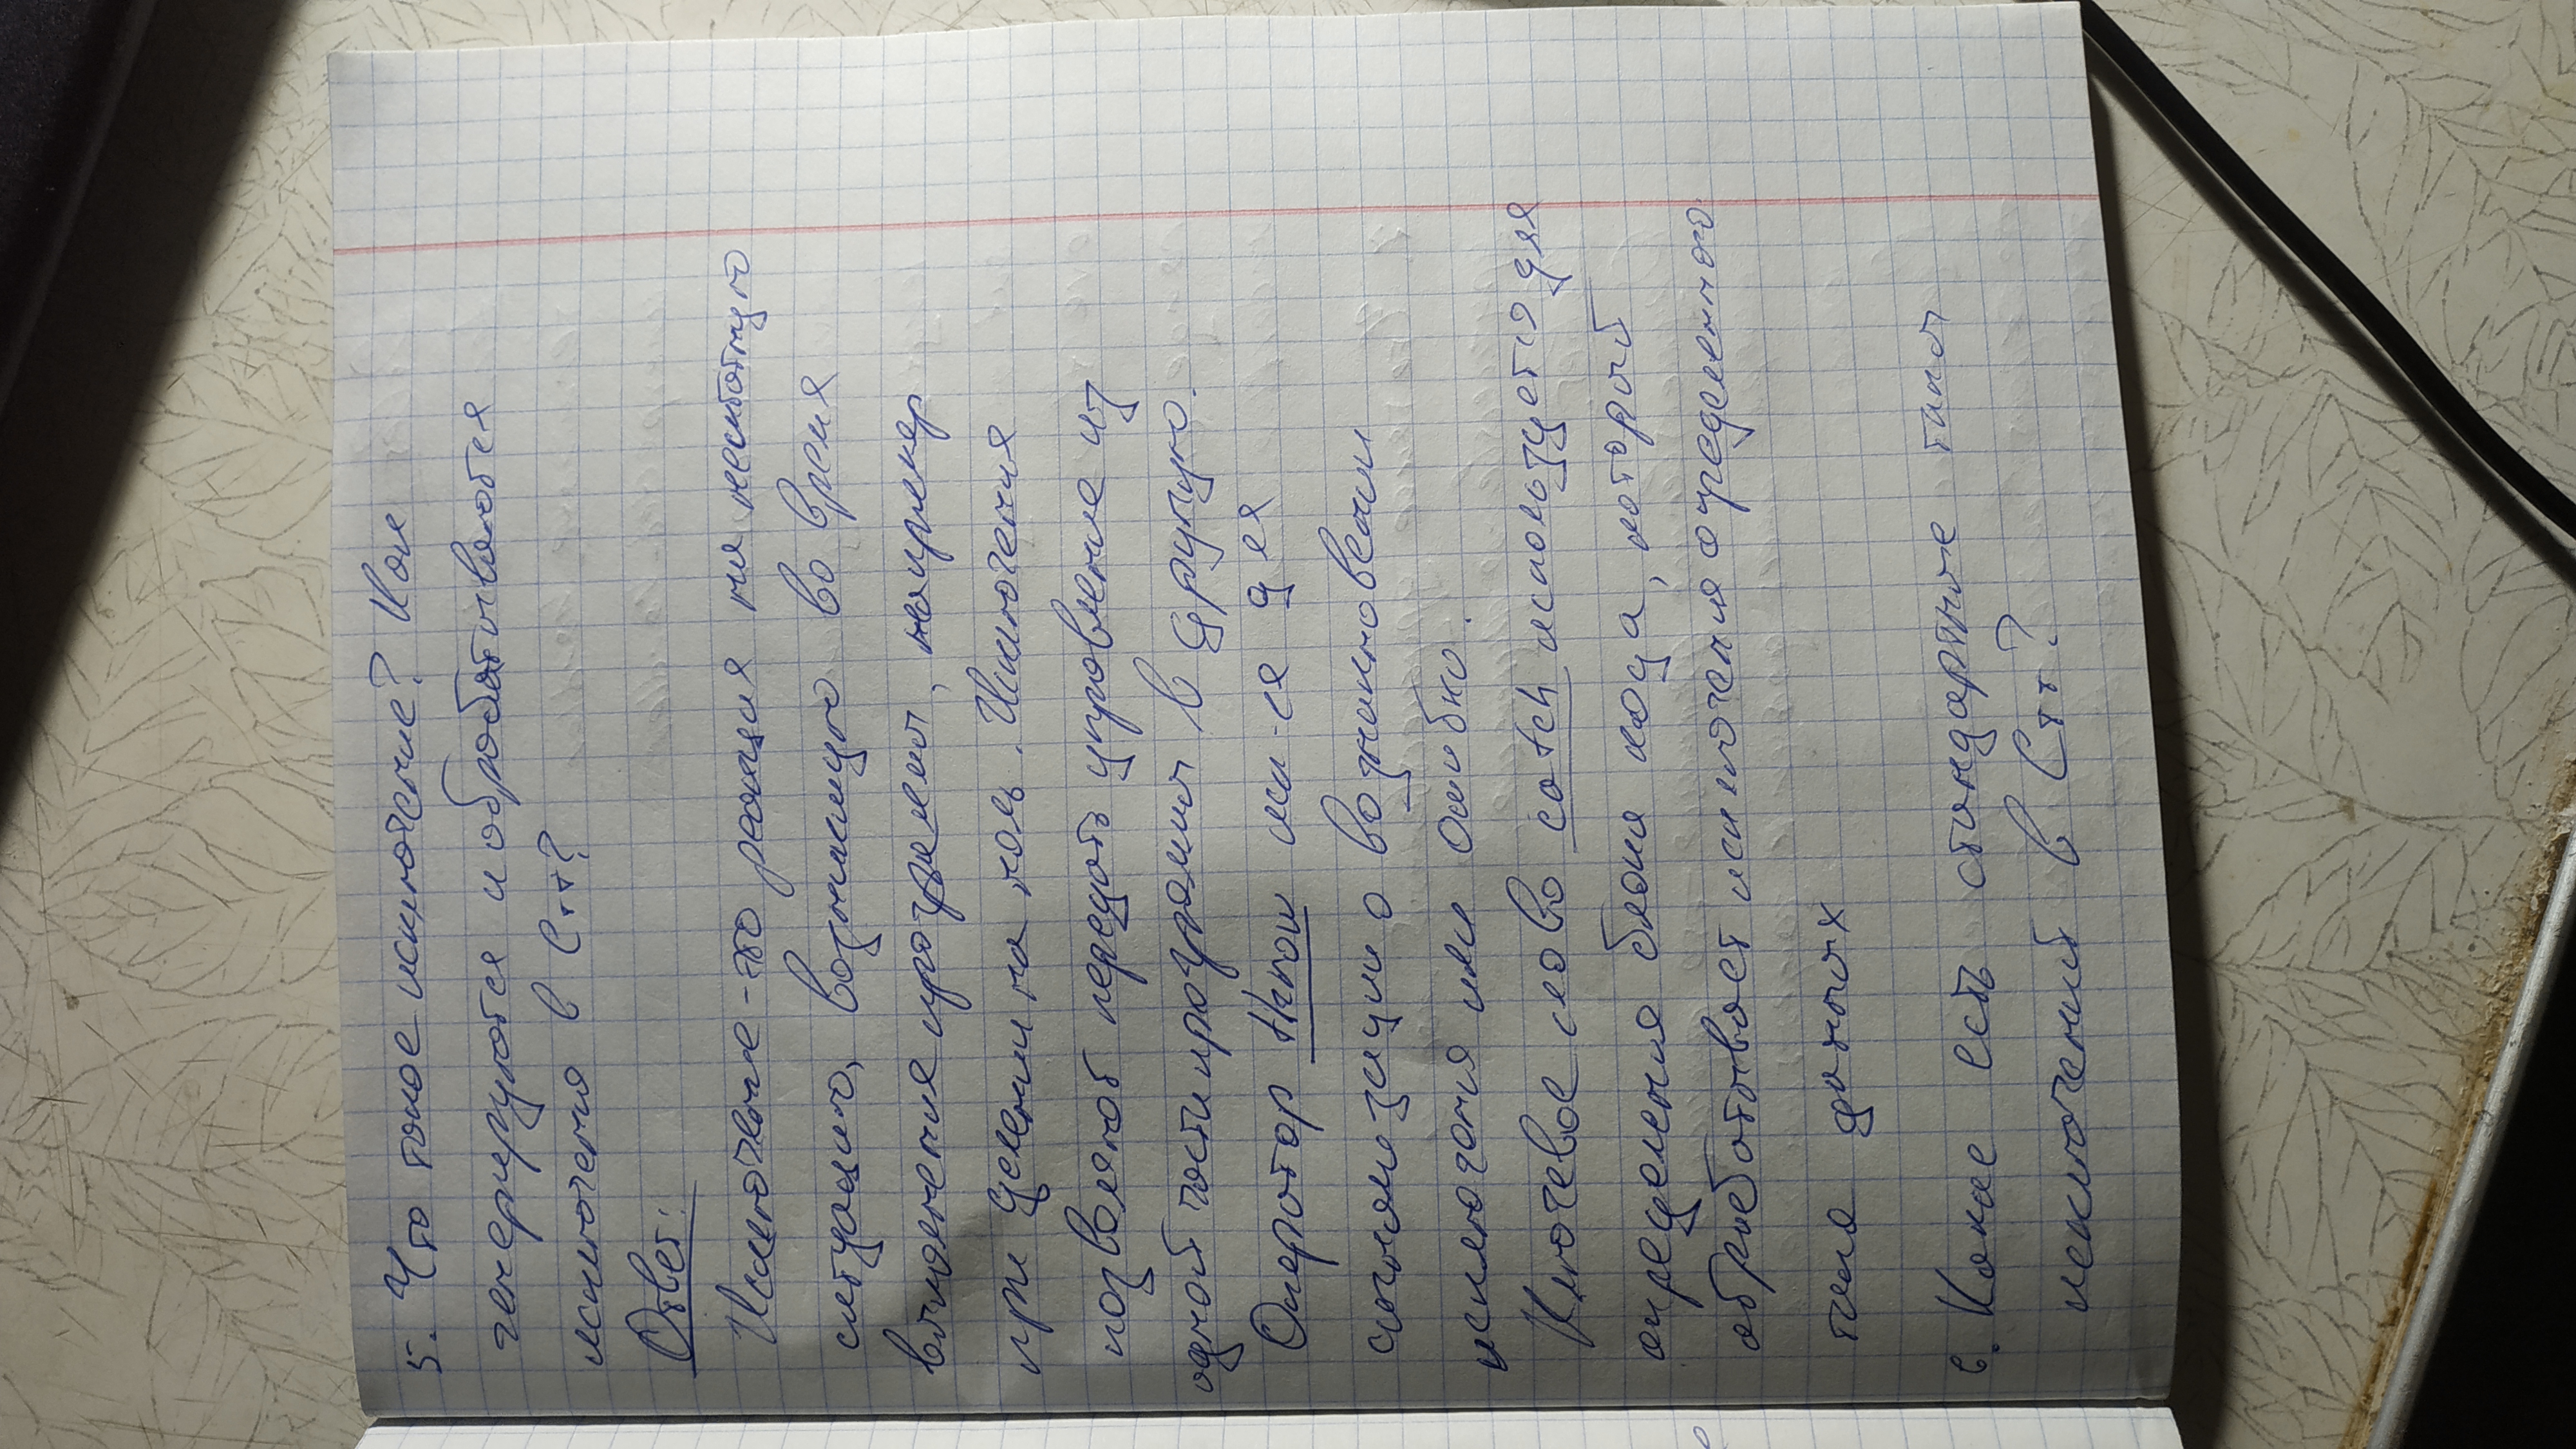 5. Что такое исключение? Как
генерируются и обрабатываются
исключения в C++?
Ответ:
Исключение - это реакция на нештатную
ситуацию, возникшую во время
выполнения программы, например
при делении на ноль. Исключения
позволяют передать управление из
одной части программы в другую.
Оператор throw исп-ся для
сигнализации о возникновении
исключения или ошибки.
Ключевое слово catch используется для
определения блока кода, который
обрабатывает исключения определенного
типа данных
6. Какие есть стандартные типы
исключений в C++?